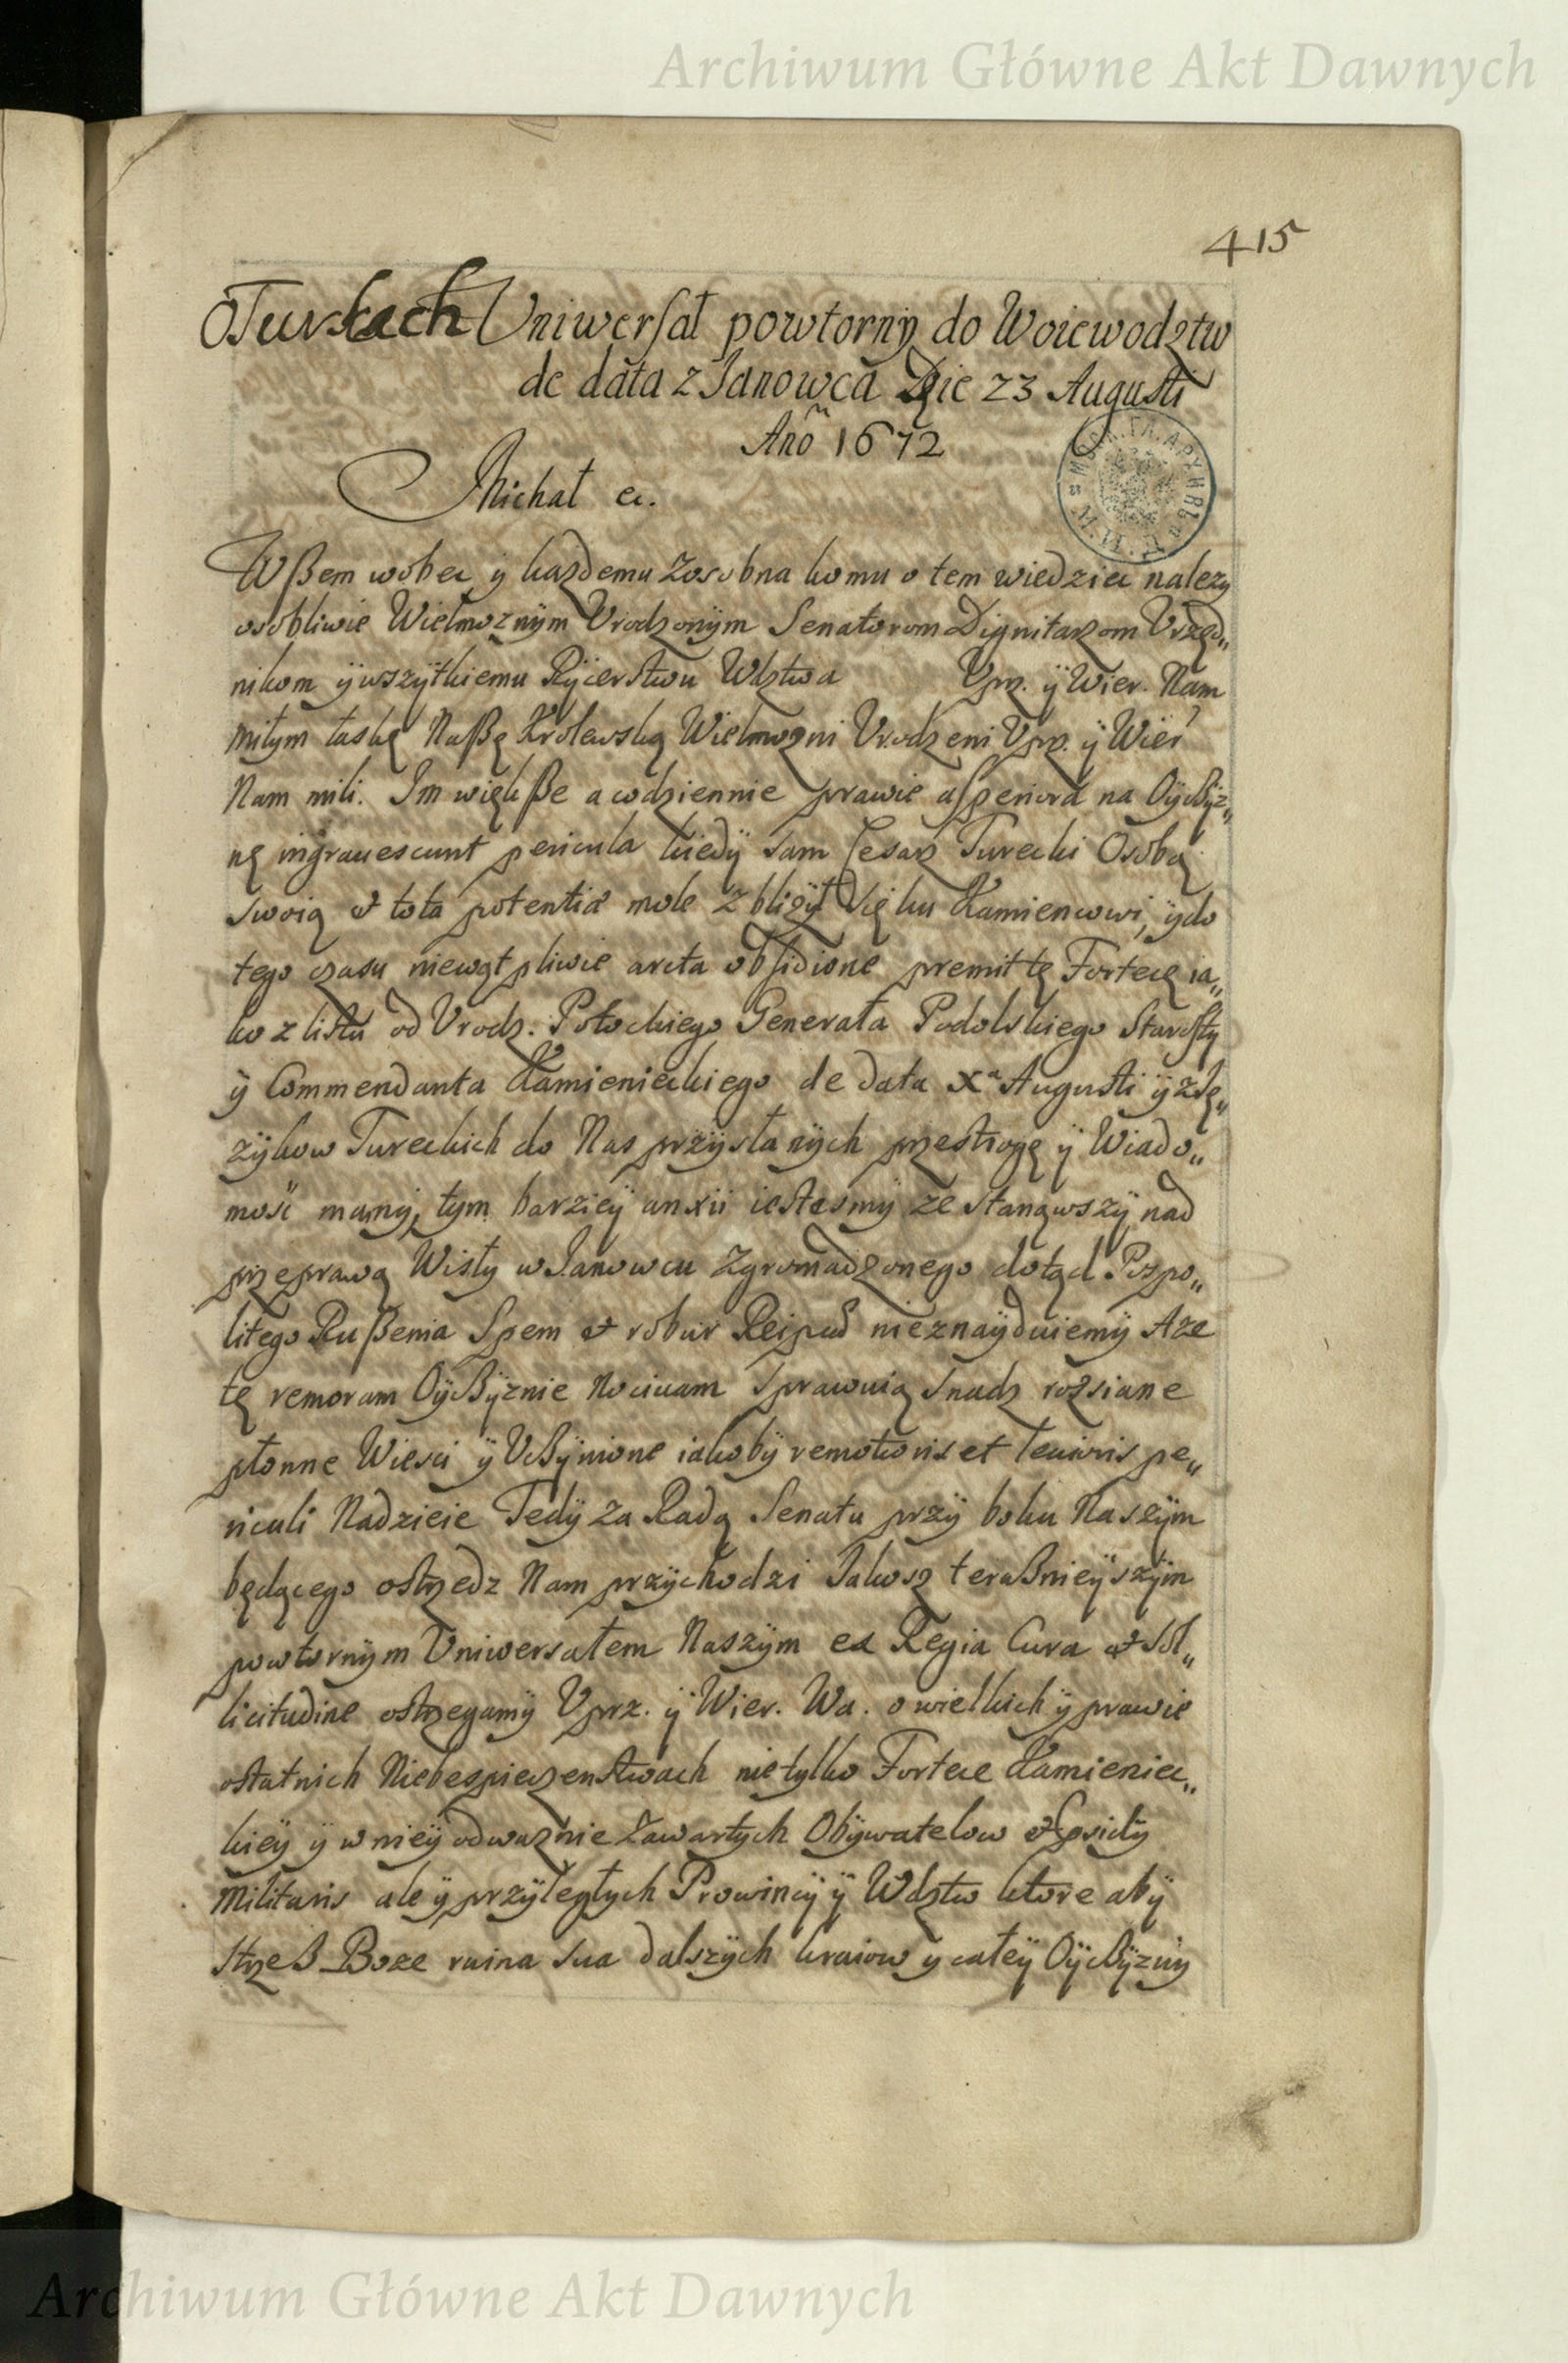 Archiwum Główne Akt Dawnych
415
O Turkach Uniwersał powtorny do Woiewodztw
de data z Janowca Die 23 Augusti
Año 1672
Michał ec.
Wßem wobec y kazdemu zosobna komu o tem wiedziec nalezy
osobliwie Wielmoznÿm Vrodzonÿm Senatorom Dignitarzom Vrzęd„
nikom ÿ wszÿtkiemu Rÿcerstwu Wdztwa Vprz. ÿ Wier. Nam
miłym łaskę Naßę Krolewską Wielmozni Vrodzeni Vprz. ÿ Wier
Nam mili. Im większe a codziennie prawie asperiora na Oÿcßÿz„
nę ingrauescunt pericula kiedÿ sam Cesarz Turecki Osobą
swoią et tota potentia mole zbliżÿł się ku Kamiencowi, ÿ do
tego czasu niewątpliwie arcta obsidione premit tę Fortecę ia„
ko z listu od Vrodz. Potockiego Generała Podolskiego Starosty
ÿ Commendanta Kamienieckiego de data Xª Augusti ÿ z Ię„
zÿkow Tureckich do Nas przÿsłanÿch przestrogę ÿ Wiado„
mość mamÿ, tym barzieÿ anxii iestesmÿ ze stanąwszÿ nad
przeprawą Wisły w Janowcu zgromadzonego dotąd Pospo„
litego Rußenia Spem et robur Reipub nieznaÿduiemÿ Aze
tę remoram Oÿcßÿznie Nociuam sprawuią snadz rozsiane
płonne Wiesci ÿ Vcßÿnione iakobÿ remotioris et leuioris pe„
riculi Nadzieie Tedÿ za Radą Senatu przÿ boku Naszÿm
będącego ostrzedz Nam przÿchodzi Jakosz teraßnieÿszÿm
powtornÿm Uniwersałem Naszÿm ex Regia Cura et Sol„
licitudine ostrzegamÿ Vprz. ÿ Wier. Wa. o wielkich ÿ prawie
ostatnich Niebespieczenstwach nie tylko Fortece Kamieniec„
kieÿ ÿ w nieÿ odwaznie zawartÿch Obÿwatelow et
Militaris ale ÿ przÿległÿch Prowincÿÿ Wdztw ktore abÿ
strzeß Boze ruina sua dalszÿch kraiow y całeÿ Oÿcßÿznÿ
Archiwum Główne Akt Dawnych